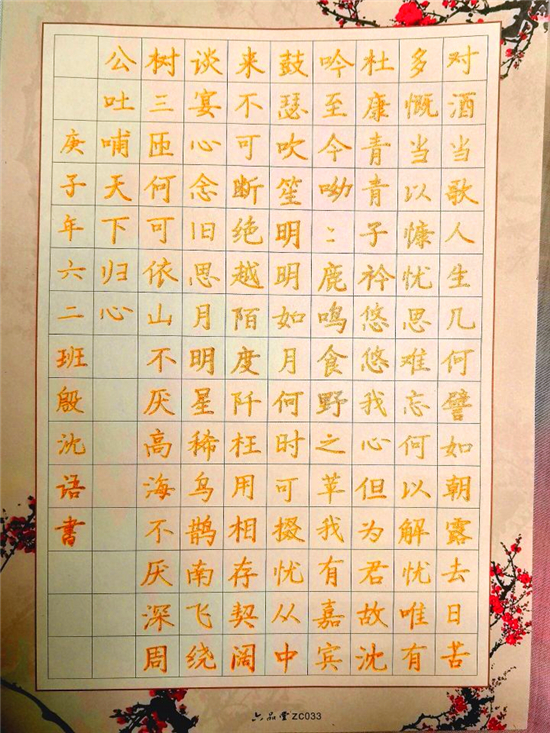 对酒当歌人生几何譬如朝露去日苦
多慨当以慷忧思难忘何以解忧唯有
杜康青青子衿悠悠我心但为君故沈
吟至今呦：鹿鸣食野之苹我有嘉宾
鼓瑟吹笙明明如月何时可掇忧从中
来不可断绝越陌度阡枉用相存契阔
谈宴心念旧思月明星稀鸟鹊南飞绕
树三匝何可依山不厌高海不厌深周
公吐哺天下归心
庚子年六二班殷沈语书
六品堂 ZC033